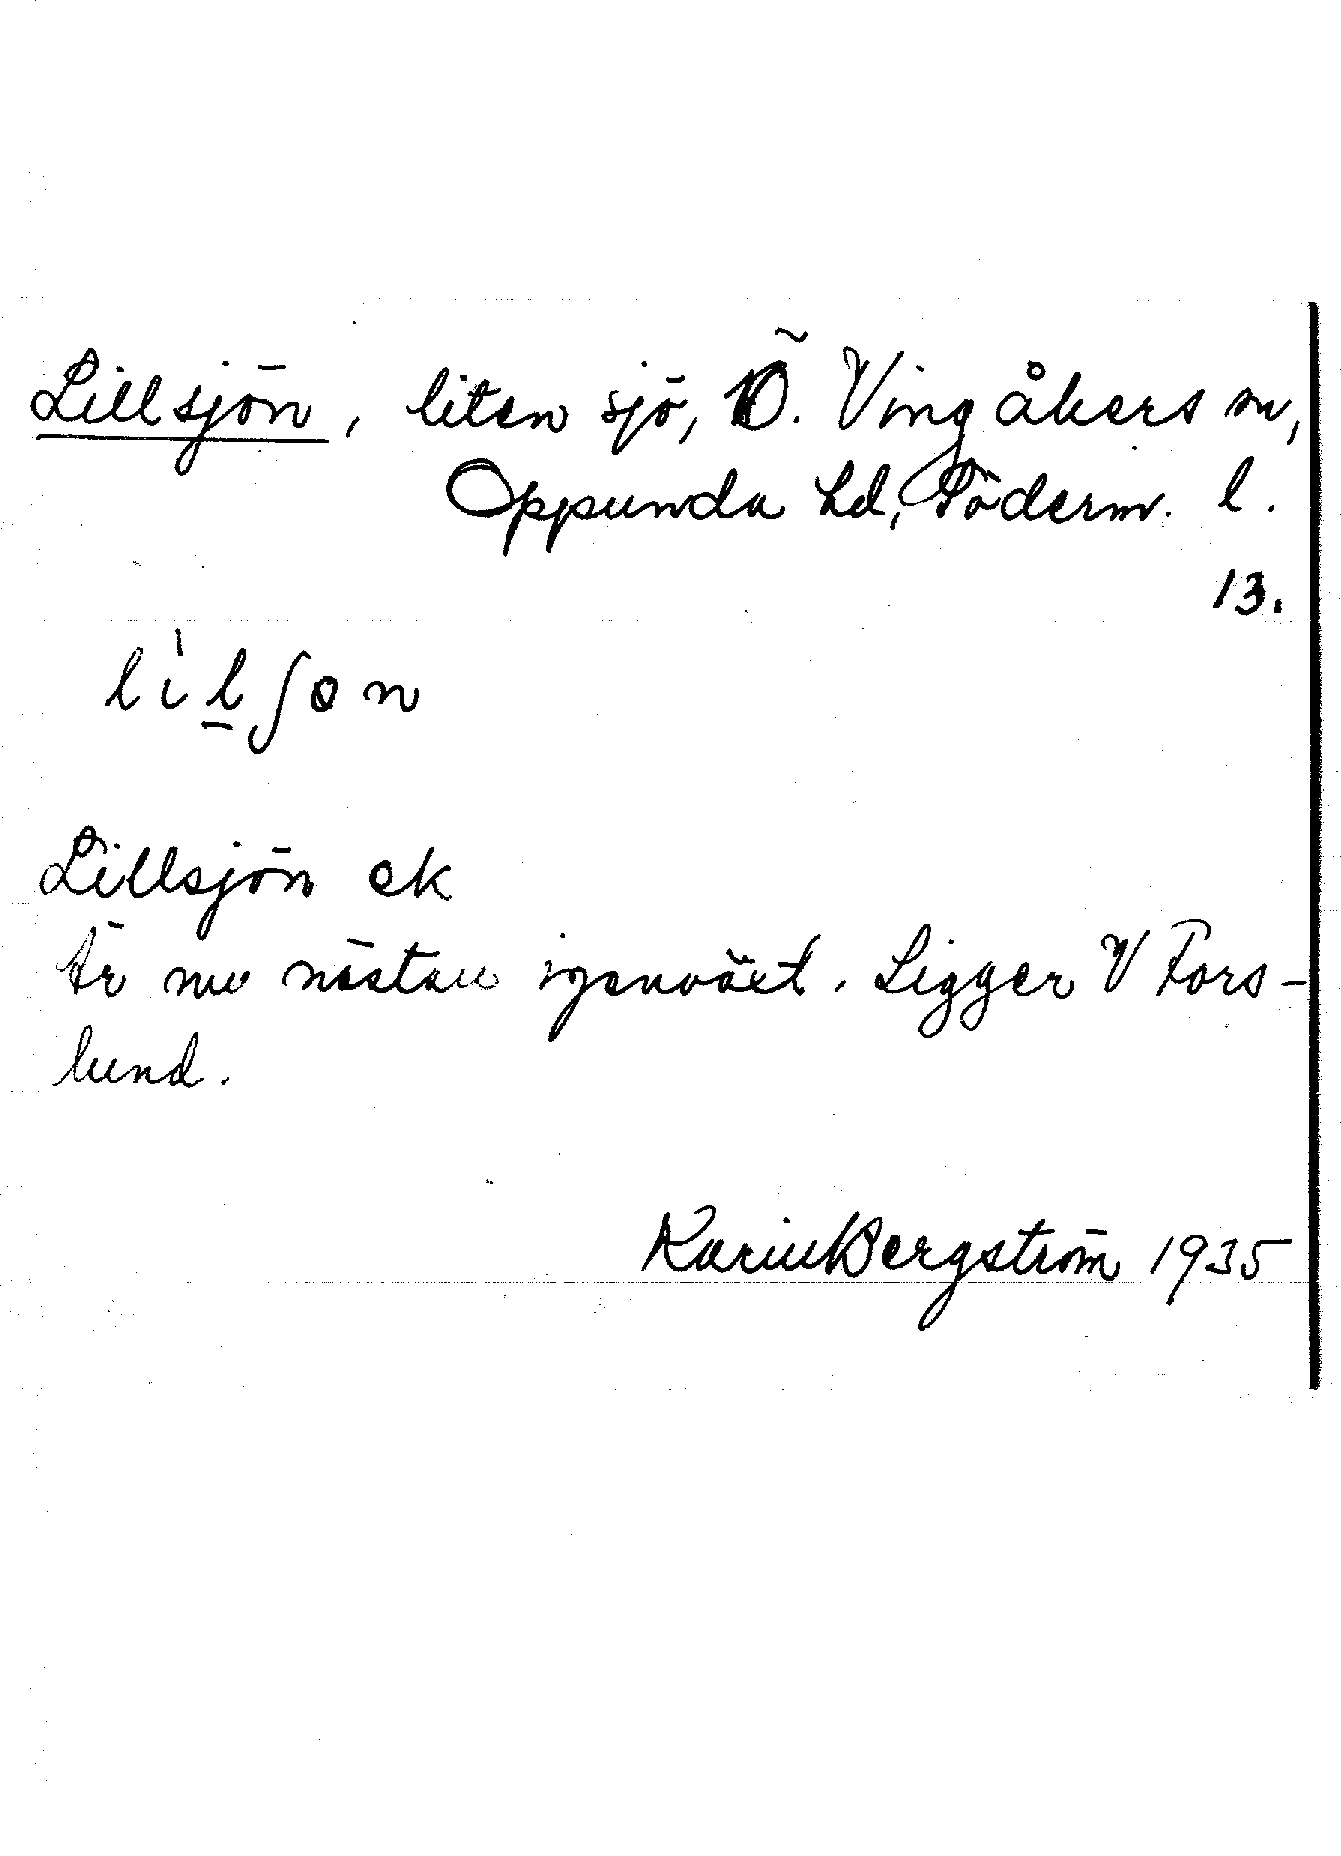 Lillsjön, liten sjö, Ö. Vingåkers sn,
Oppunda hd, Söderm. l.
13.
lìl̠ʃɵn
Lillsjön ek
Är nu nästan igenväxt. Ligger V Fors-
lund.
Karin Bergström 1935